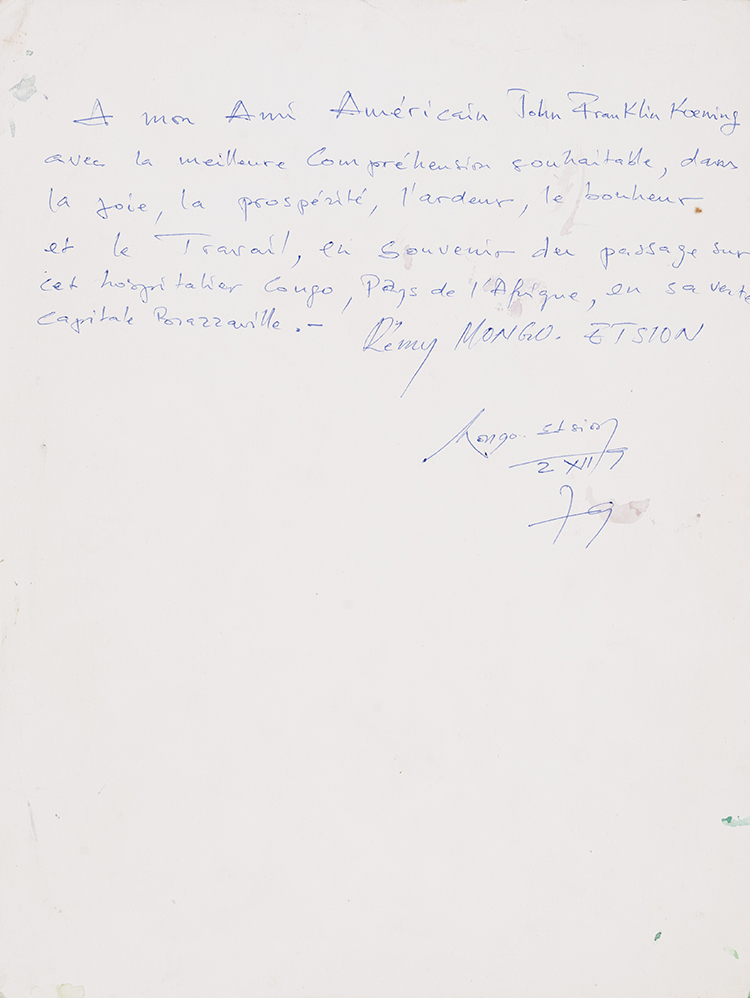 A mon Ami Américain John Franklin Kœning
avec la meilleure Compréhension souhaitable, dans
la joie, la prospérité, l'ardeur, le bonheur
et le Travail, en souvenir du passage sur
cet hospitalier Congo, Pays de l'Afrique, en sa verte
capitale Brazzaville.-
Rémy MONGO-ETSION
Mongo-Etsion
2 XII
79